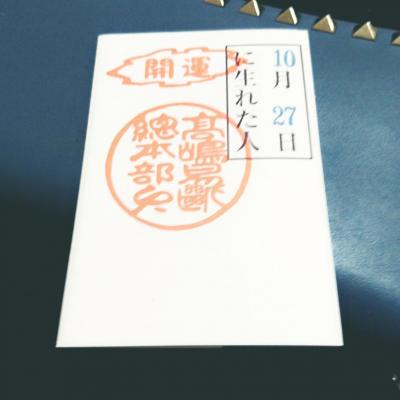 10月27日
に生れた人
開運
高嶋易斷
總本部